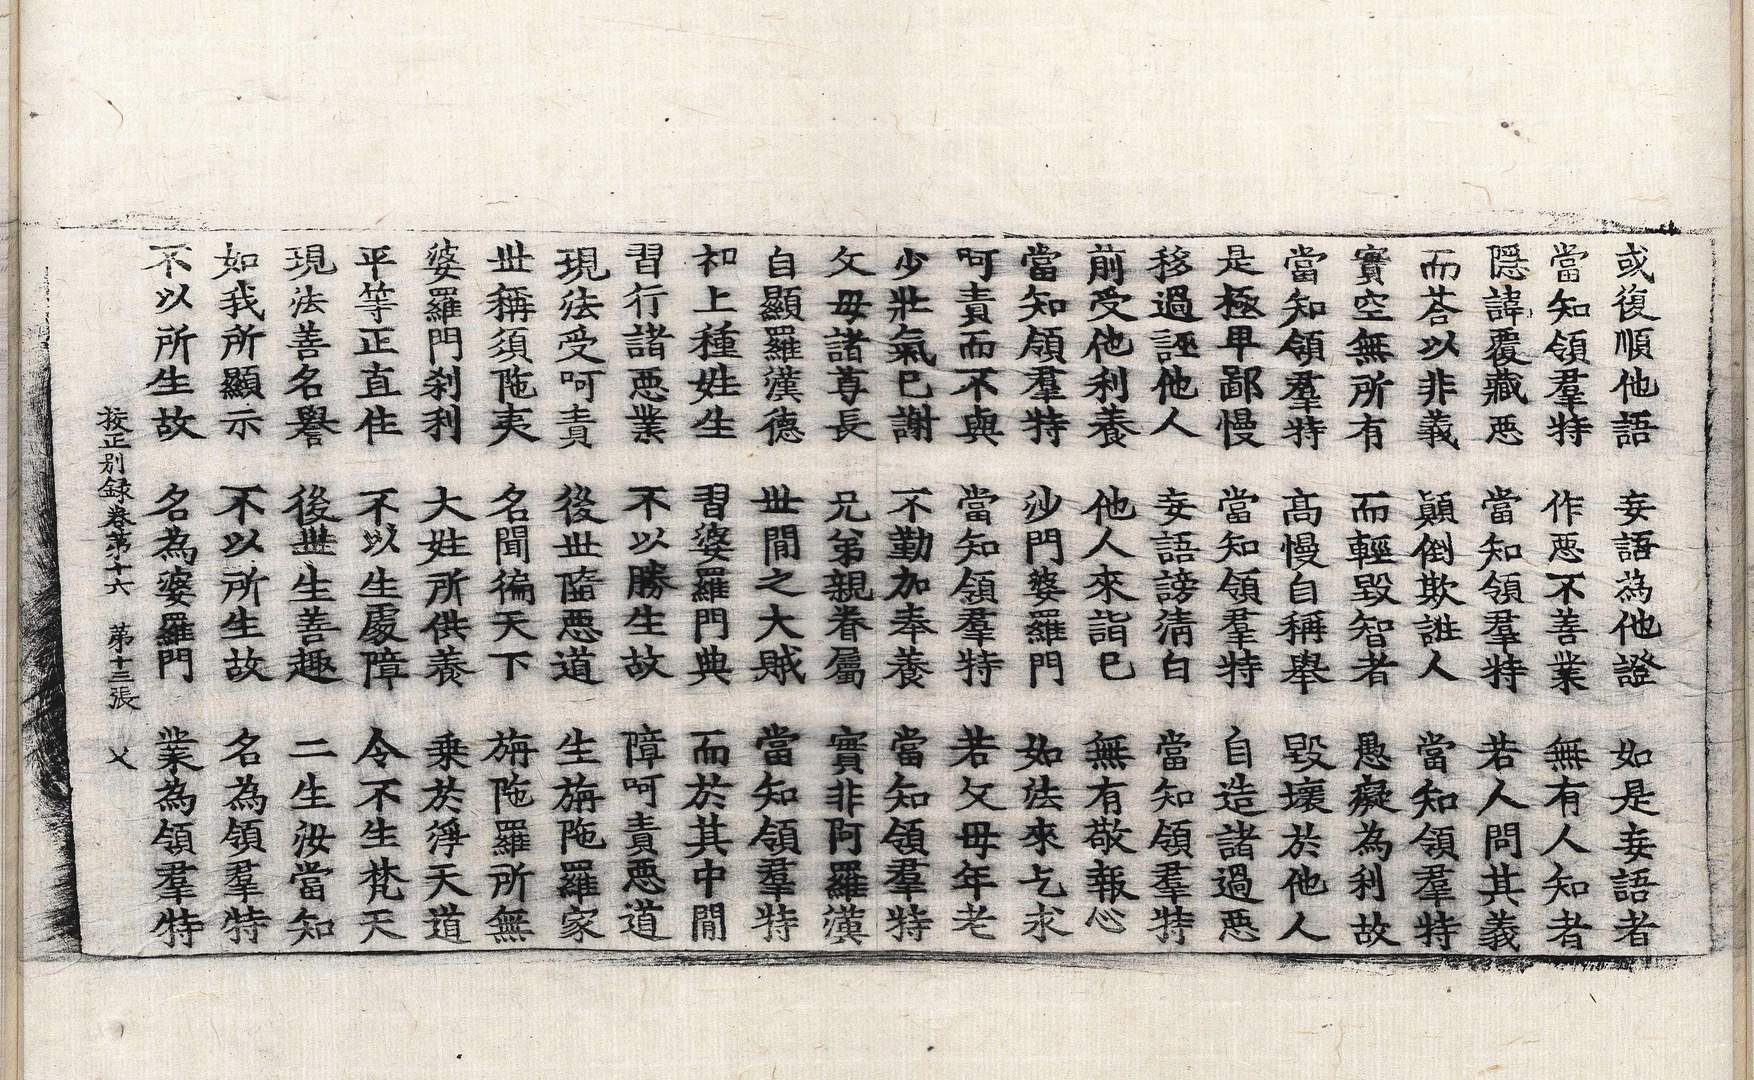 或復順他語　妄語為他證　如是妄語者
當知領羣特　作惡不善業　無有人知者
隱諱覆藏惡　當知領羣特　若人問其義
而荅以非義　顛倒欺誑人　當知領羣特
實空無所有　而輕毀智者　愚癡為利故
當知領羣特　高慢自稱舉　毀壞於他人
是極卑鄙慢　當知領羣特　自造諸過惡
移過誣他人　妄語謗清白　當知領羣特
前受他利養　他人來詣已　無有敬報心
當知領羣特　沙門婆羅門　如法來乞求
呵責而不與　當知領羣特　若父母年老
少壯氣已謝　不勤加奉養　當知領羣特
父母諸尊長　兄弟親眷屬　實非阿羅漢
自顯羅漢德　世間之大賊　當知領羣特
初上種姓生　習婆羅門典　而於其中間
習行諸惡業　不以勝生故　障呵責惡道
現法受呵責　後世墮惡道　生旃陁羅家
世稱須陁夷　名聞徧天下　旃陁羅所無
婆羅門刹利　大姓所供養　乘於淨天道
平等正直住　不以生處障　令不生梵天
現法善名譽　後世生善趣　二生汝當知
如我所顯示　不以所生故　名為領羣特
不以所生故　名為婆羅門　業為領羣特
校正別録卷第十六　第十三張　乂